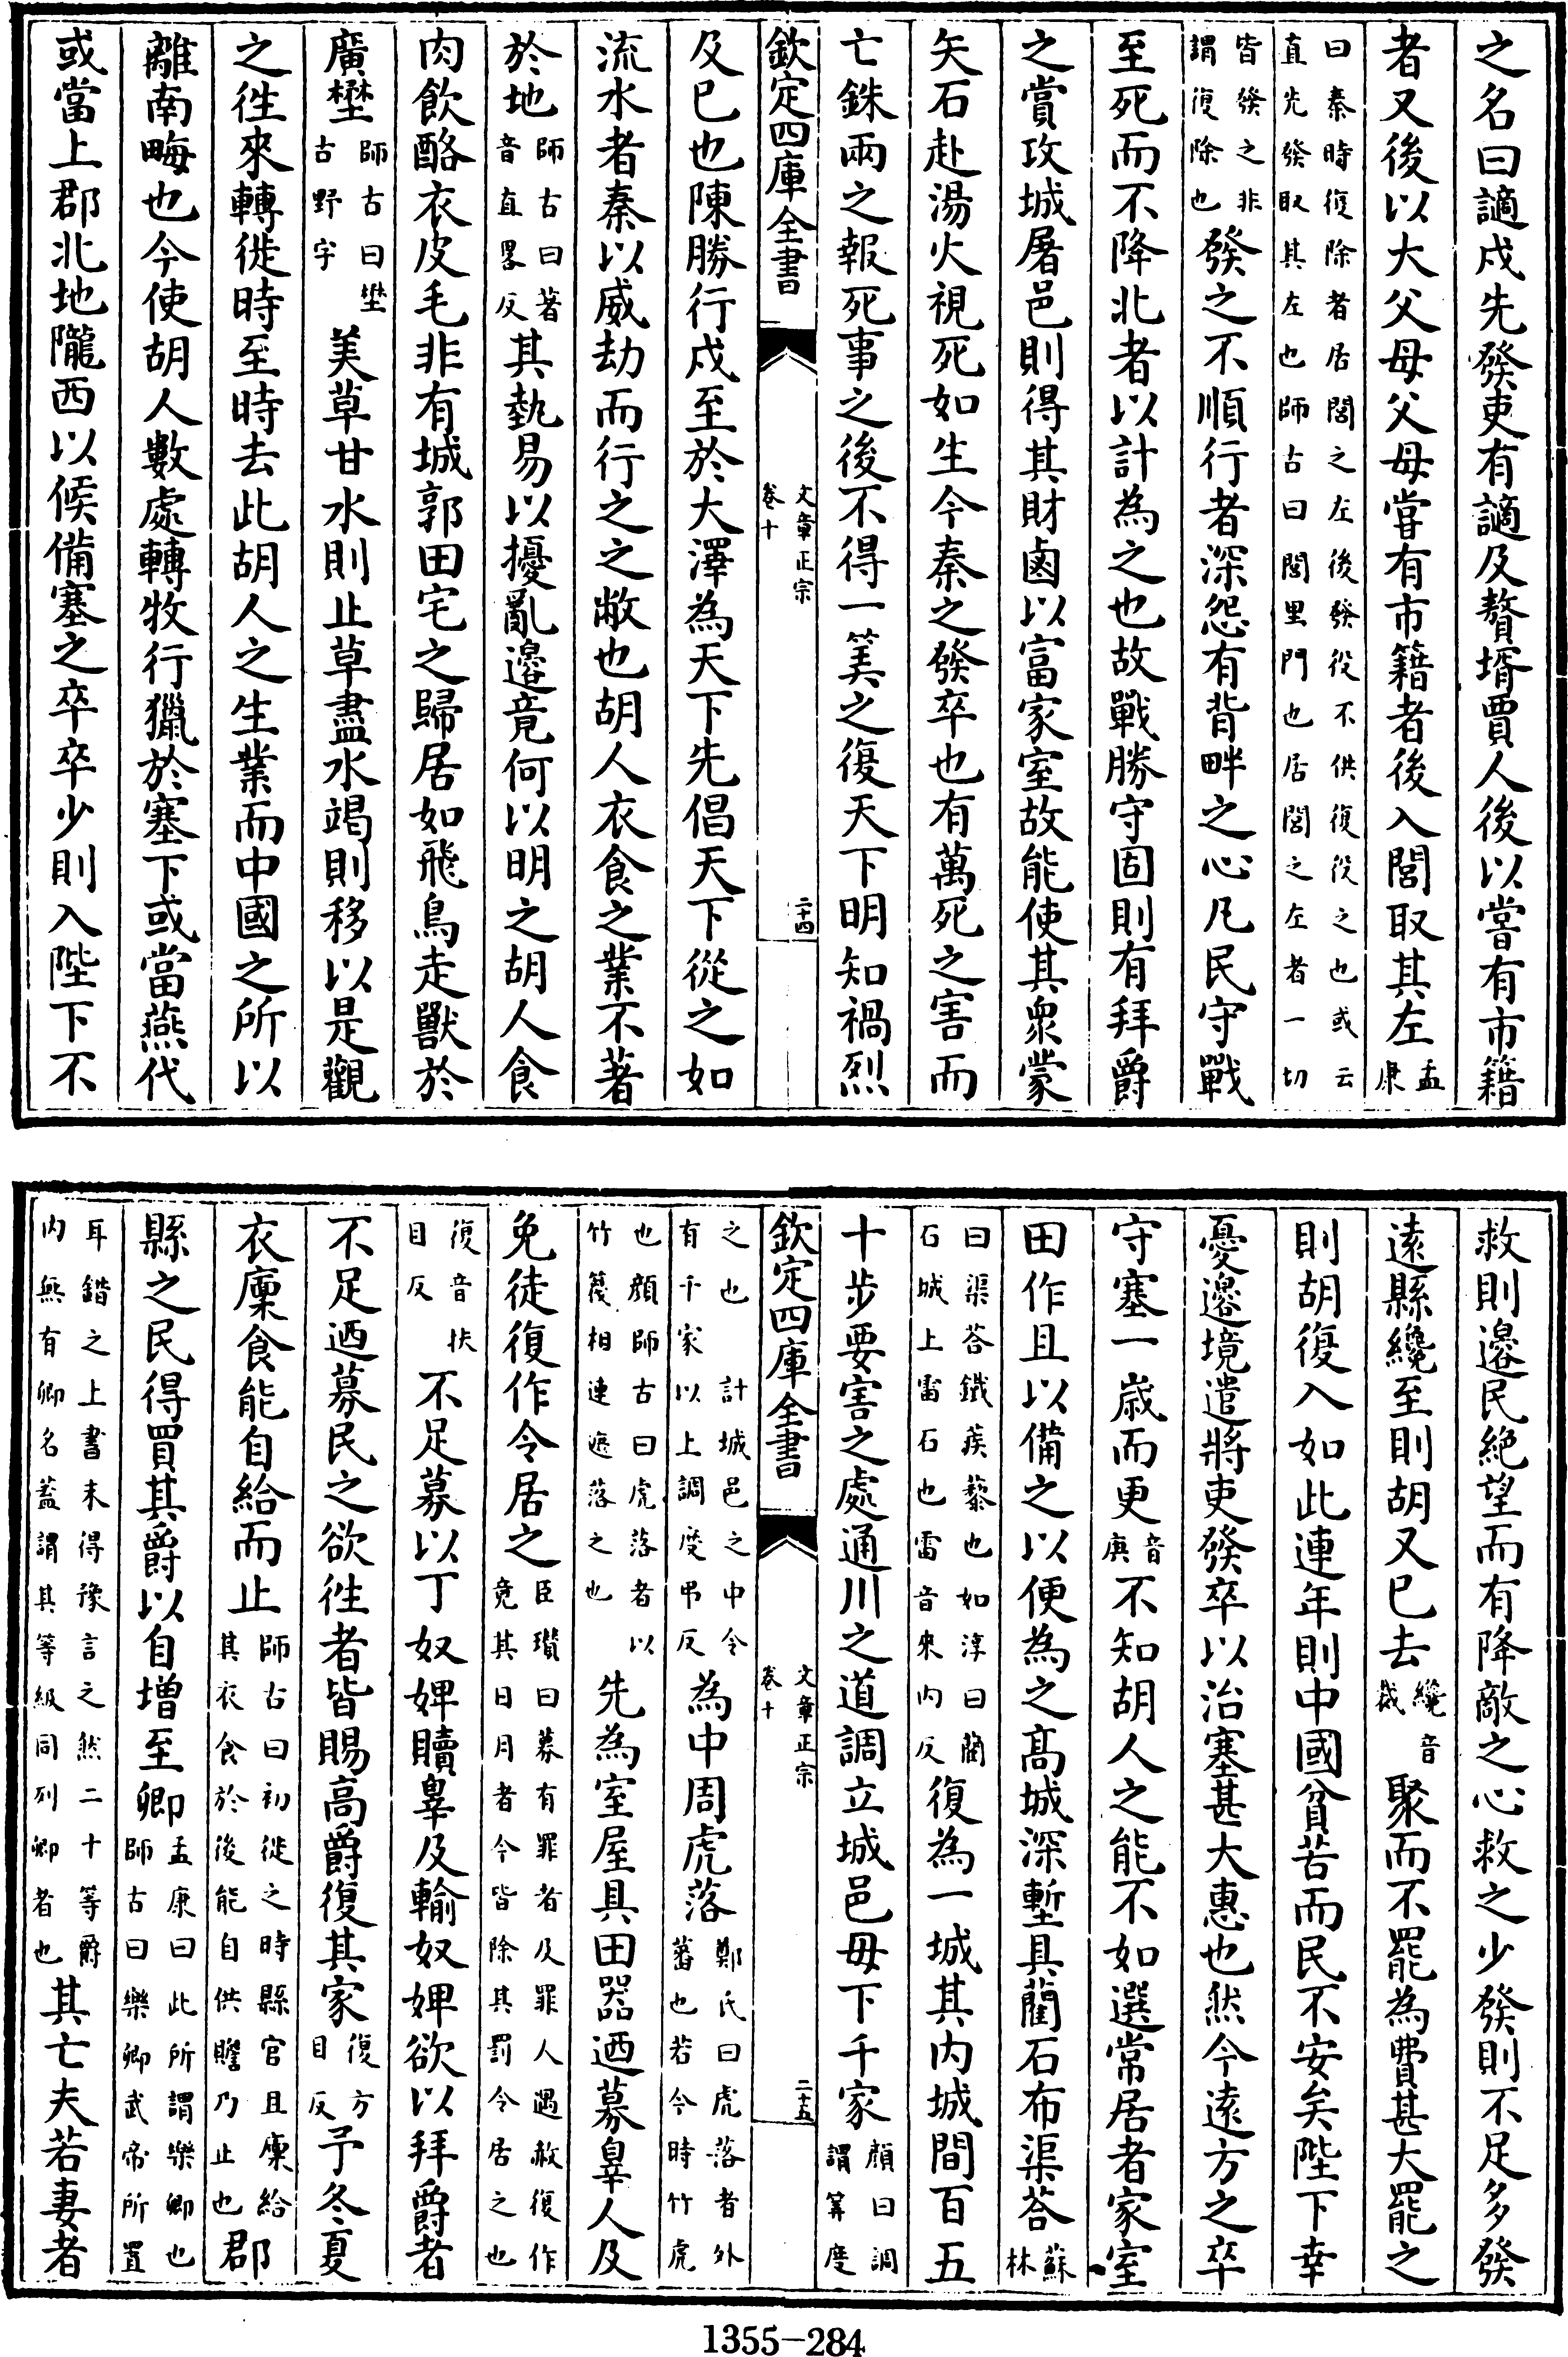 之名曰讁戍先發吏有讁及贅壻賈人後以嘗有市籍
者又後以大父母父母嘗有市籍者後入閭取其左孟康
曰秦時復除者居閭之左後發役不供復役之也或云
直先發取其左也師古曰閭里門也居閭之左者一切
皆發之非謂復除也發之不順行者深怨有背畔之心凡民守戰
至死而不降北者以計為之也故戰勝守固則有拜爵
之賞攻城屠邑則得其財鹵以富家室故能使其衆蒙
矢石赴湯火視死如生今秦之發卒也有萬死之害而
亡銖兩之報死事之後不得一筭之復天下明知禍烈
欽定四庫全書 文章正宗 卷十 二十四
及已也陳勝行戍至於大澤為天下先倡天下從之如
流水者秦以威劫而行之之敝也胡人衣食之業不著
於地師古曰著音直畧反其埶易以擾亂邊竟何以明之胡人食
肉飲酪衣皮毛非有城郭田宅之歸居如飛鳥走獸於
廣壄師古曰壄古野字美草甘水則止草盡水竭則移以是觀
之徃來轉徙時至時去此胡人之生業而中國之所以
離南畮也今使胡人數處轉牧行獵於塞下或當燕代
或當上郡北地隴西以候備塞之卒卒少則入陛下不
救則邊民絶望而有降敵之心救之少發則不足多發
遠縣纔至則胡又已去纔音裁聚而不罷為費甚大罷之
則胡復入如此連年則中國貧苦而民不安矣陛下幸
憂邊境遣將吏發卒以治塞甚大惠也然今遠方之卒
守塞一歲而更音庚不知胡人之能不如選常居者家室
田作且以備之以便為之髙城深塹具藺石布渠荅蘇林
曰渠荅鐵蒺藜也如淳曰藺石城上雷石也雷音來内反復為一城其内城間百五
十步要害之處通川之道調立城邑毋下千家顔曰調謂筭度
之也計城邑之中令有千家以上調度弔反為中周虎落鄭氏曰虎落者外蕃也若今時竹虎
也顔師古曰虎落者以竹篾相連遮落之也先為室屋具田器廼募辠人及
免徒復作令居之臣瓚曰募有罪者及罪人遇赦復作竟其日月者今皆除其罰令居之也
復音扶目反不足募以丁奴婢贖辠及輸奴婢欲以拜爵者
不足廼募民之欲徃者皆賜高爵復其家復方目反予冬夏
衣廩食能自給而止師古曰初徙之時縣官且廩給其衣食於後能自供贍乃止也郡
縣之民得買其爵以自增至卿孟康曰此所謂樂卿也師古曰樂卿武帝所置
耳錯之上書未得豫言之然二十等爵内無有卿名蓋謂其等級同列卿者也其亡夫若妻者
欽定四庫全書 文章正宗 卷十 二十五
1355-284